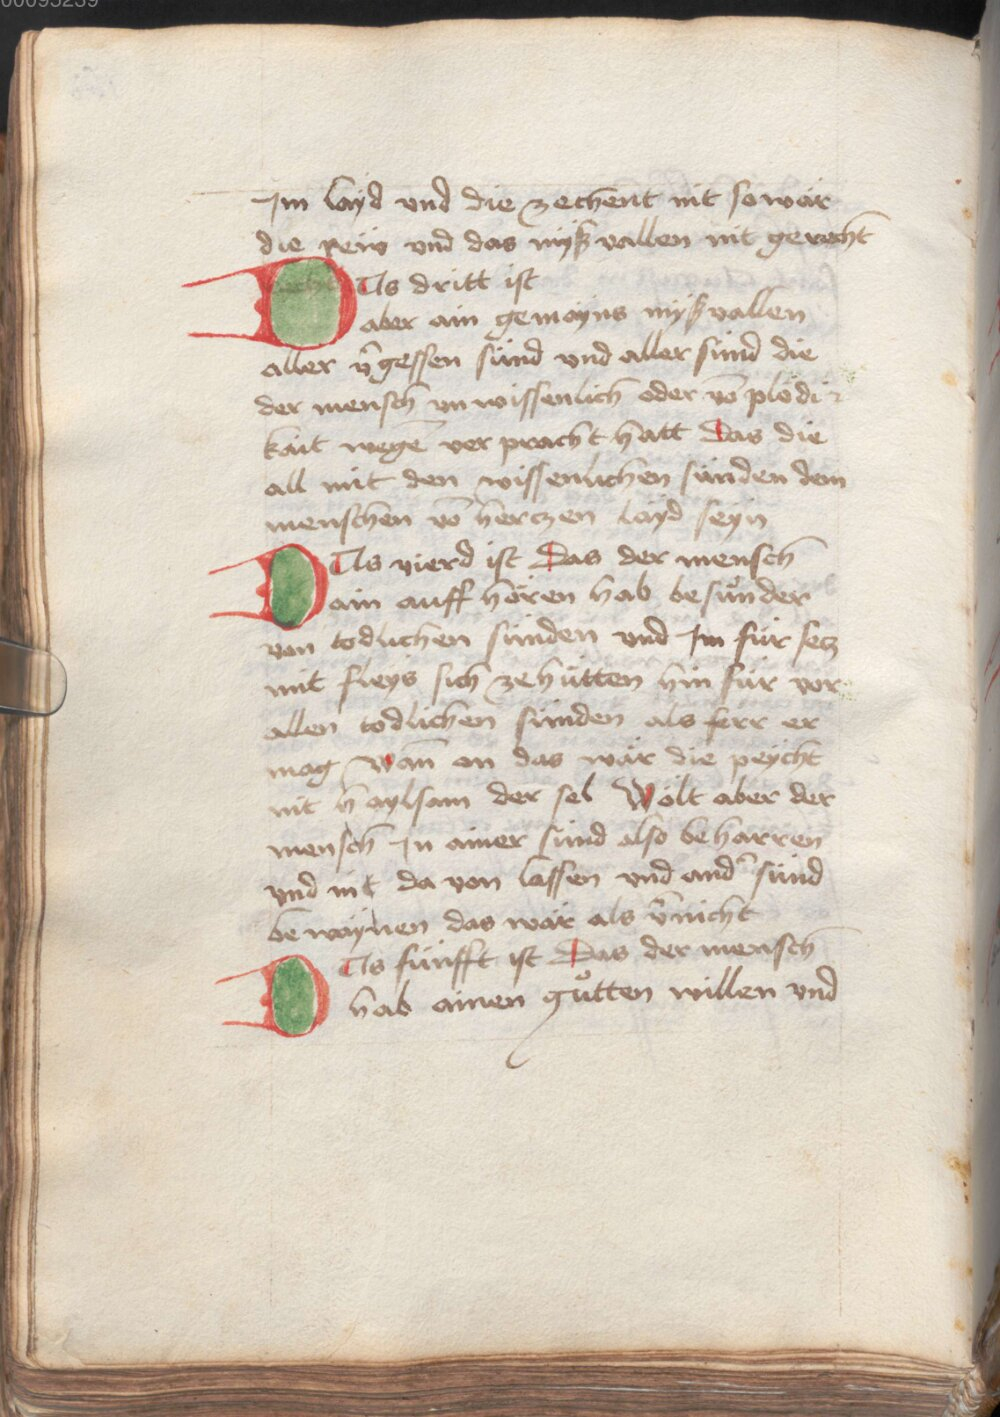 00095239
Im layd vnd die zechent nit so wär
die reẅ vnd das myßvallen nit gerecht
DAs dritt ist
aber ain gemayns myßvallen
aller v̄gessen sünd vnd aller sünd die
der mensch vnwissenlich oder vō plödi
kait wegē verpracht hatt Das die
all mit den wissenlichen sünden dem
menschen vō herczen layd seyn
DAs vierd ist Das der mensch
ain auff hören hab besunder
von todlichen sünden vnd Im für secz
mit fleys sich ze hütten hin für vor
allen todlichen sünden als ferr er
mag Wan̄ on das wär die peycht
nit haylsam der sel Wolt aber der
mensch In ainer sünd also beharren
vnd nit da von lassen vnd and̄ sünd
bewaynen das wär als v̄nicht
DAs fünfft ist Das der mensch
hab ainen gůtten willen vnd